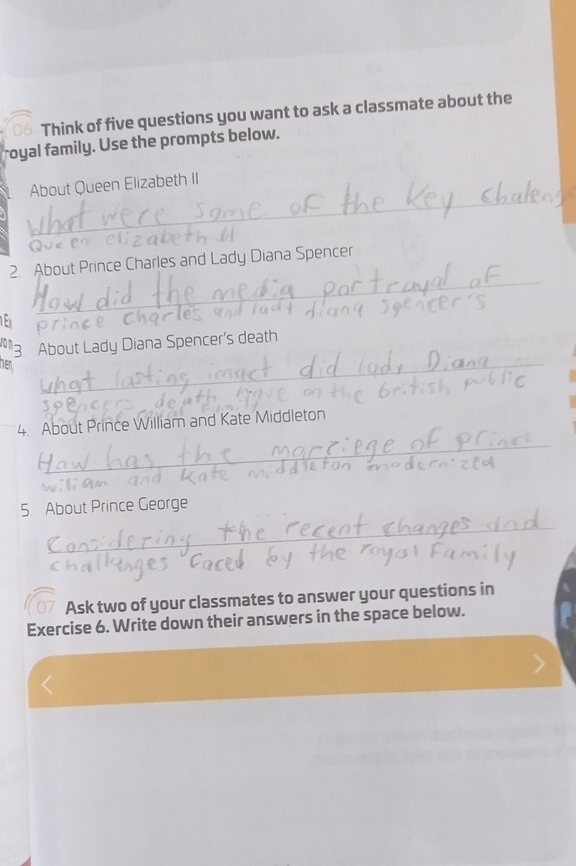 06 Think of five questions you want to ask a classmate about the
royal family. Use the prompts below.
About Queen Elizabeth II
What were some of the key chaleng
Queen elizabeth II
2. About Prince Charles and Lady Diana Spencer
How did the media portrayal of
prince charles and lady diana spencer's
3. About Lady Diana Spencer's death
what lasting imact did lady Diana
spencers death have on the british public
and the royal family
4. About Prince William and Kate Middleton
How has the marriege of prince
wiliam and kate middleton modernized
5. About Prince George
Considering the recent changes and
challenges faced by the royal family
07 Ask two of your classmates to answer your questions in
Exercise 6. Write down their answers in the space below.